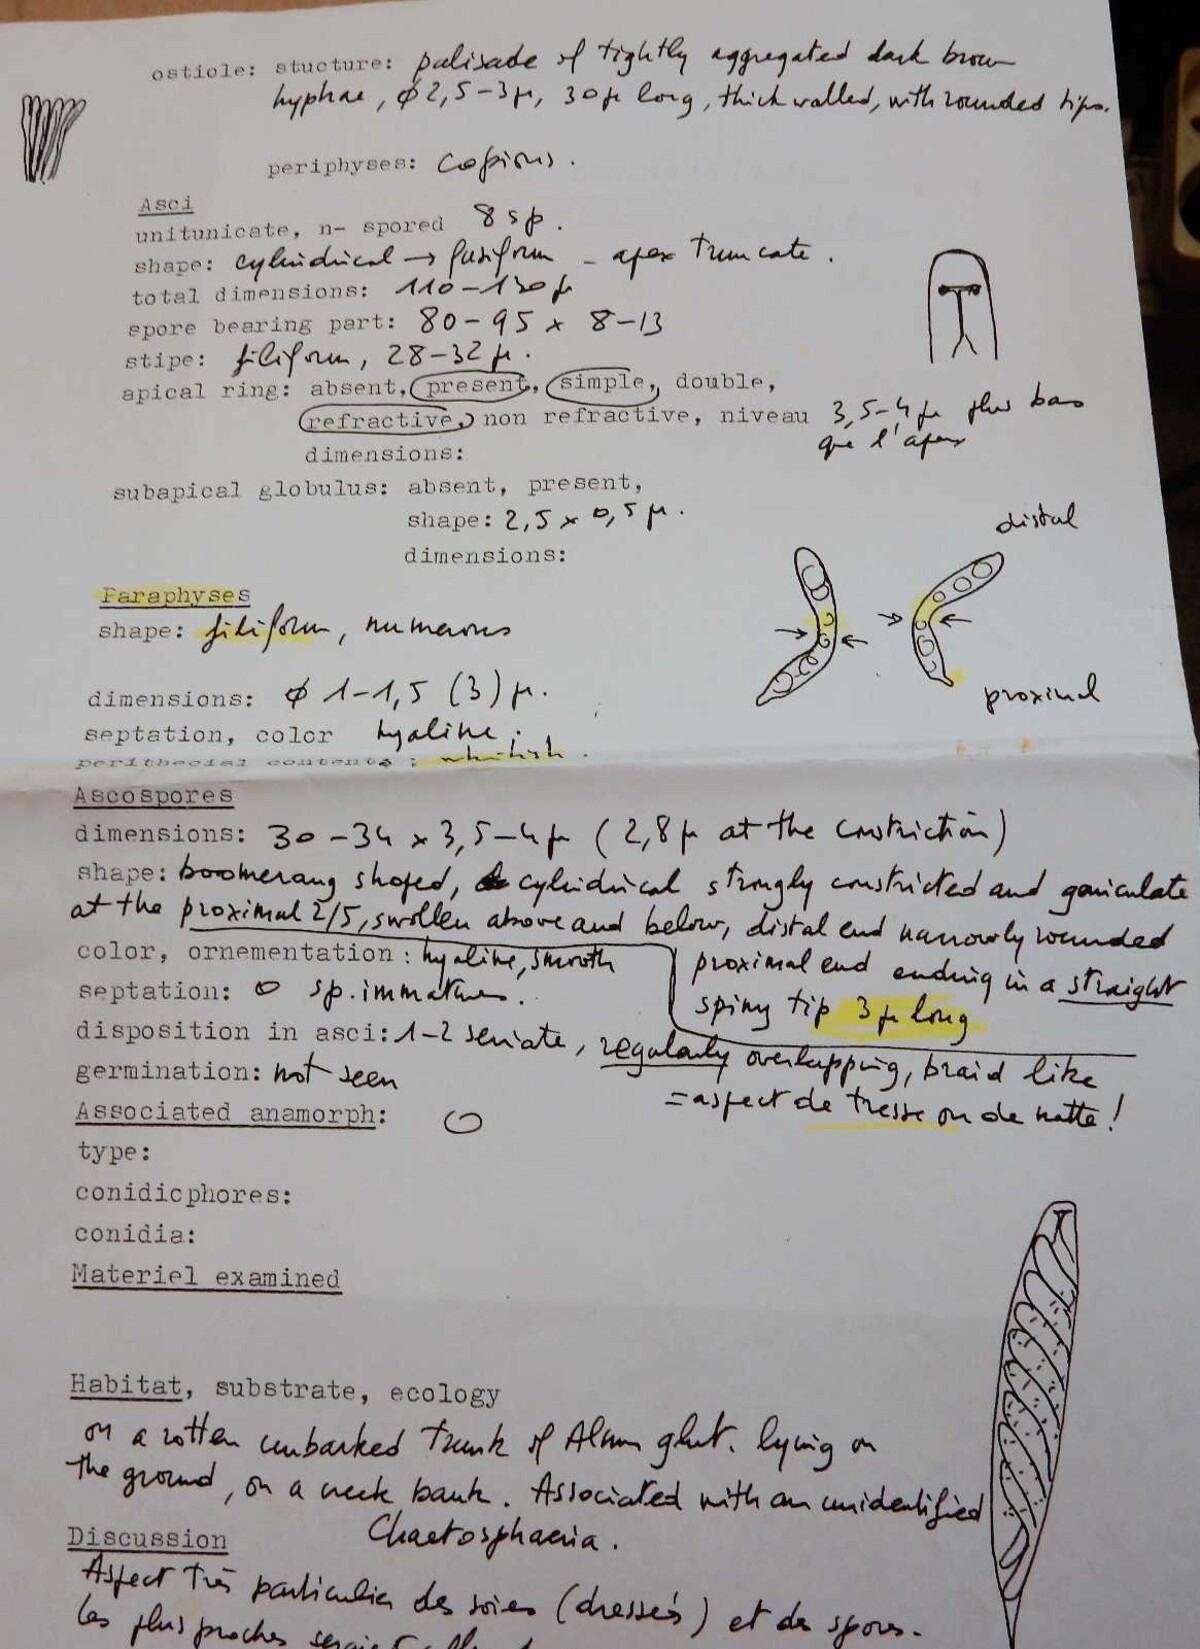 ostiole: stucture: palisade of tightly aggregated dark brown
hyphae, ϕ 2,5-3µ, 30µ long, thick walled, with rounded tips.
periphyses: copious.
Asci
unitunicate, n- spored 8 sp.
shape: cylindrical → fusiform - apex truncate.
total dimensions: 110-130µ
spore bearing part: 80-95 x 8-13
stipe: filiform, 28-32µ.
apical ring: absent, present, simple, double,
refractive, non refractive, niveau 3,5-4µ plus bas
que l'apex
dimensions:
subapical globulus: absent, present,
shape: 2,5 x 0,5µ.
dimensions:
distal
Paraphyses
shape: filiform, numerous
proximal
dimensions: ϕ 1-1,5 (3) µ.
septation, color hyaline.
perithecial contents: whitish.
Ascospores
dimensions: 30-34 x 3,5-4µ (2,8µ at the constriction)
shape: boomerang shaped, cylindrical strongly constricted and geniculate
at the proximal 2/5, swollen above and below, distal end narrowly rounded
proximal end ending in a straight
spiny tip 3µ long
color, ornementation: hyaline, smooth
septation: 0 sp. immatures.
disposition in asci: 1-2 seriate, regularly overlapping, braid like
= aspect de tresse ou de natte!
germination: not seen
Associated anamorph: 0
type:
conidicphores:
conidia:
Materiel examined
Habitat, substrate, ecology
on a rotten unbarked trunk of Alnus glut. lying on
the ground, on a creek bank. Associated with an unidentified
Chaetosphaeria.
Discussion
Aspect très particulier des soies (dressées) et des spores.
Les plus proches